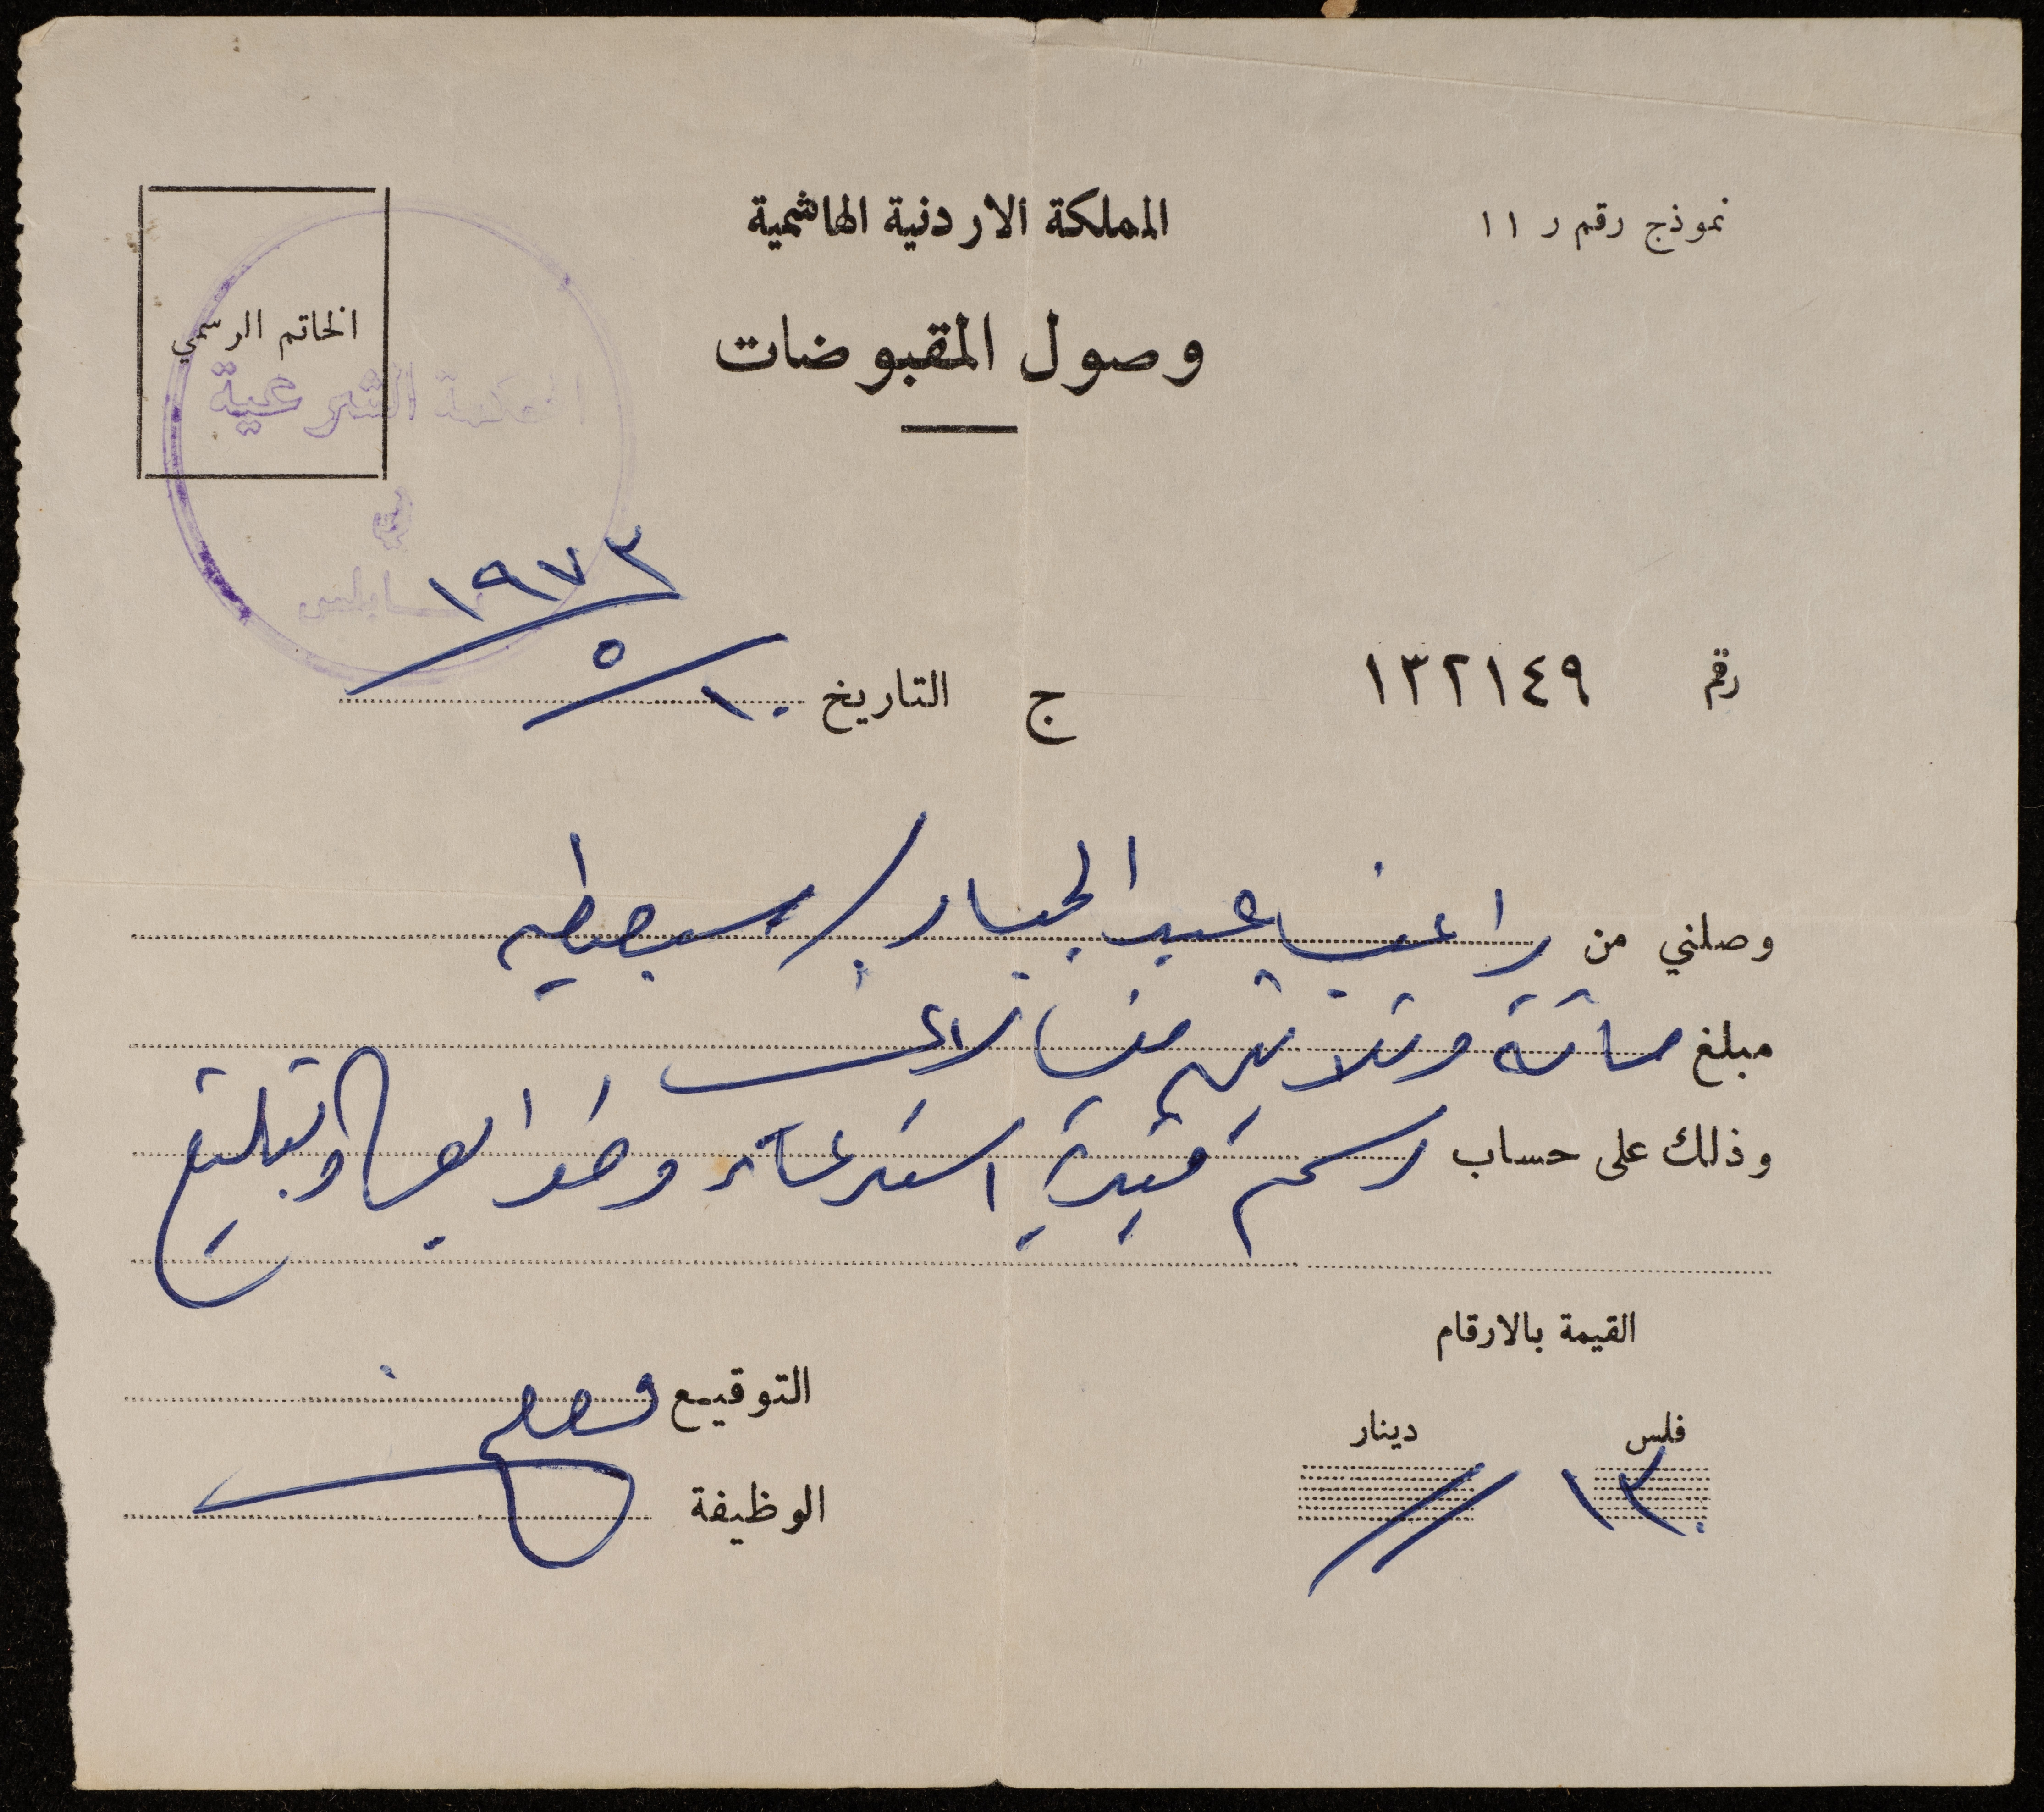 نموذج رقم ر ١١
المملكة الاردنية الهاشمية
وصول المقبوضات
الخاتم الرسمي
المحكمة الشرعية
في
نابلس
رقم ١٣٢١٤٩ ج التاريخ ١٠/٥/١٩٧٣
وصلني من راغب عبد الجبار / سبصطيه
مبلغ مائة وثلاثين فلسا لا غير
وذلك على حساب رسم قيدية استدعاء وتبليغ
القيمة بالارقام
فلس دينار
١٣٠ //
التوقيع
الوظيفة